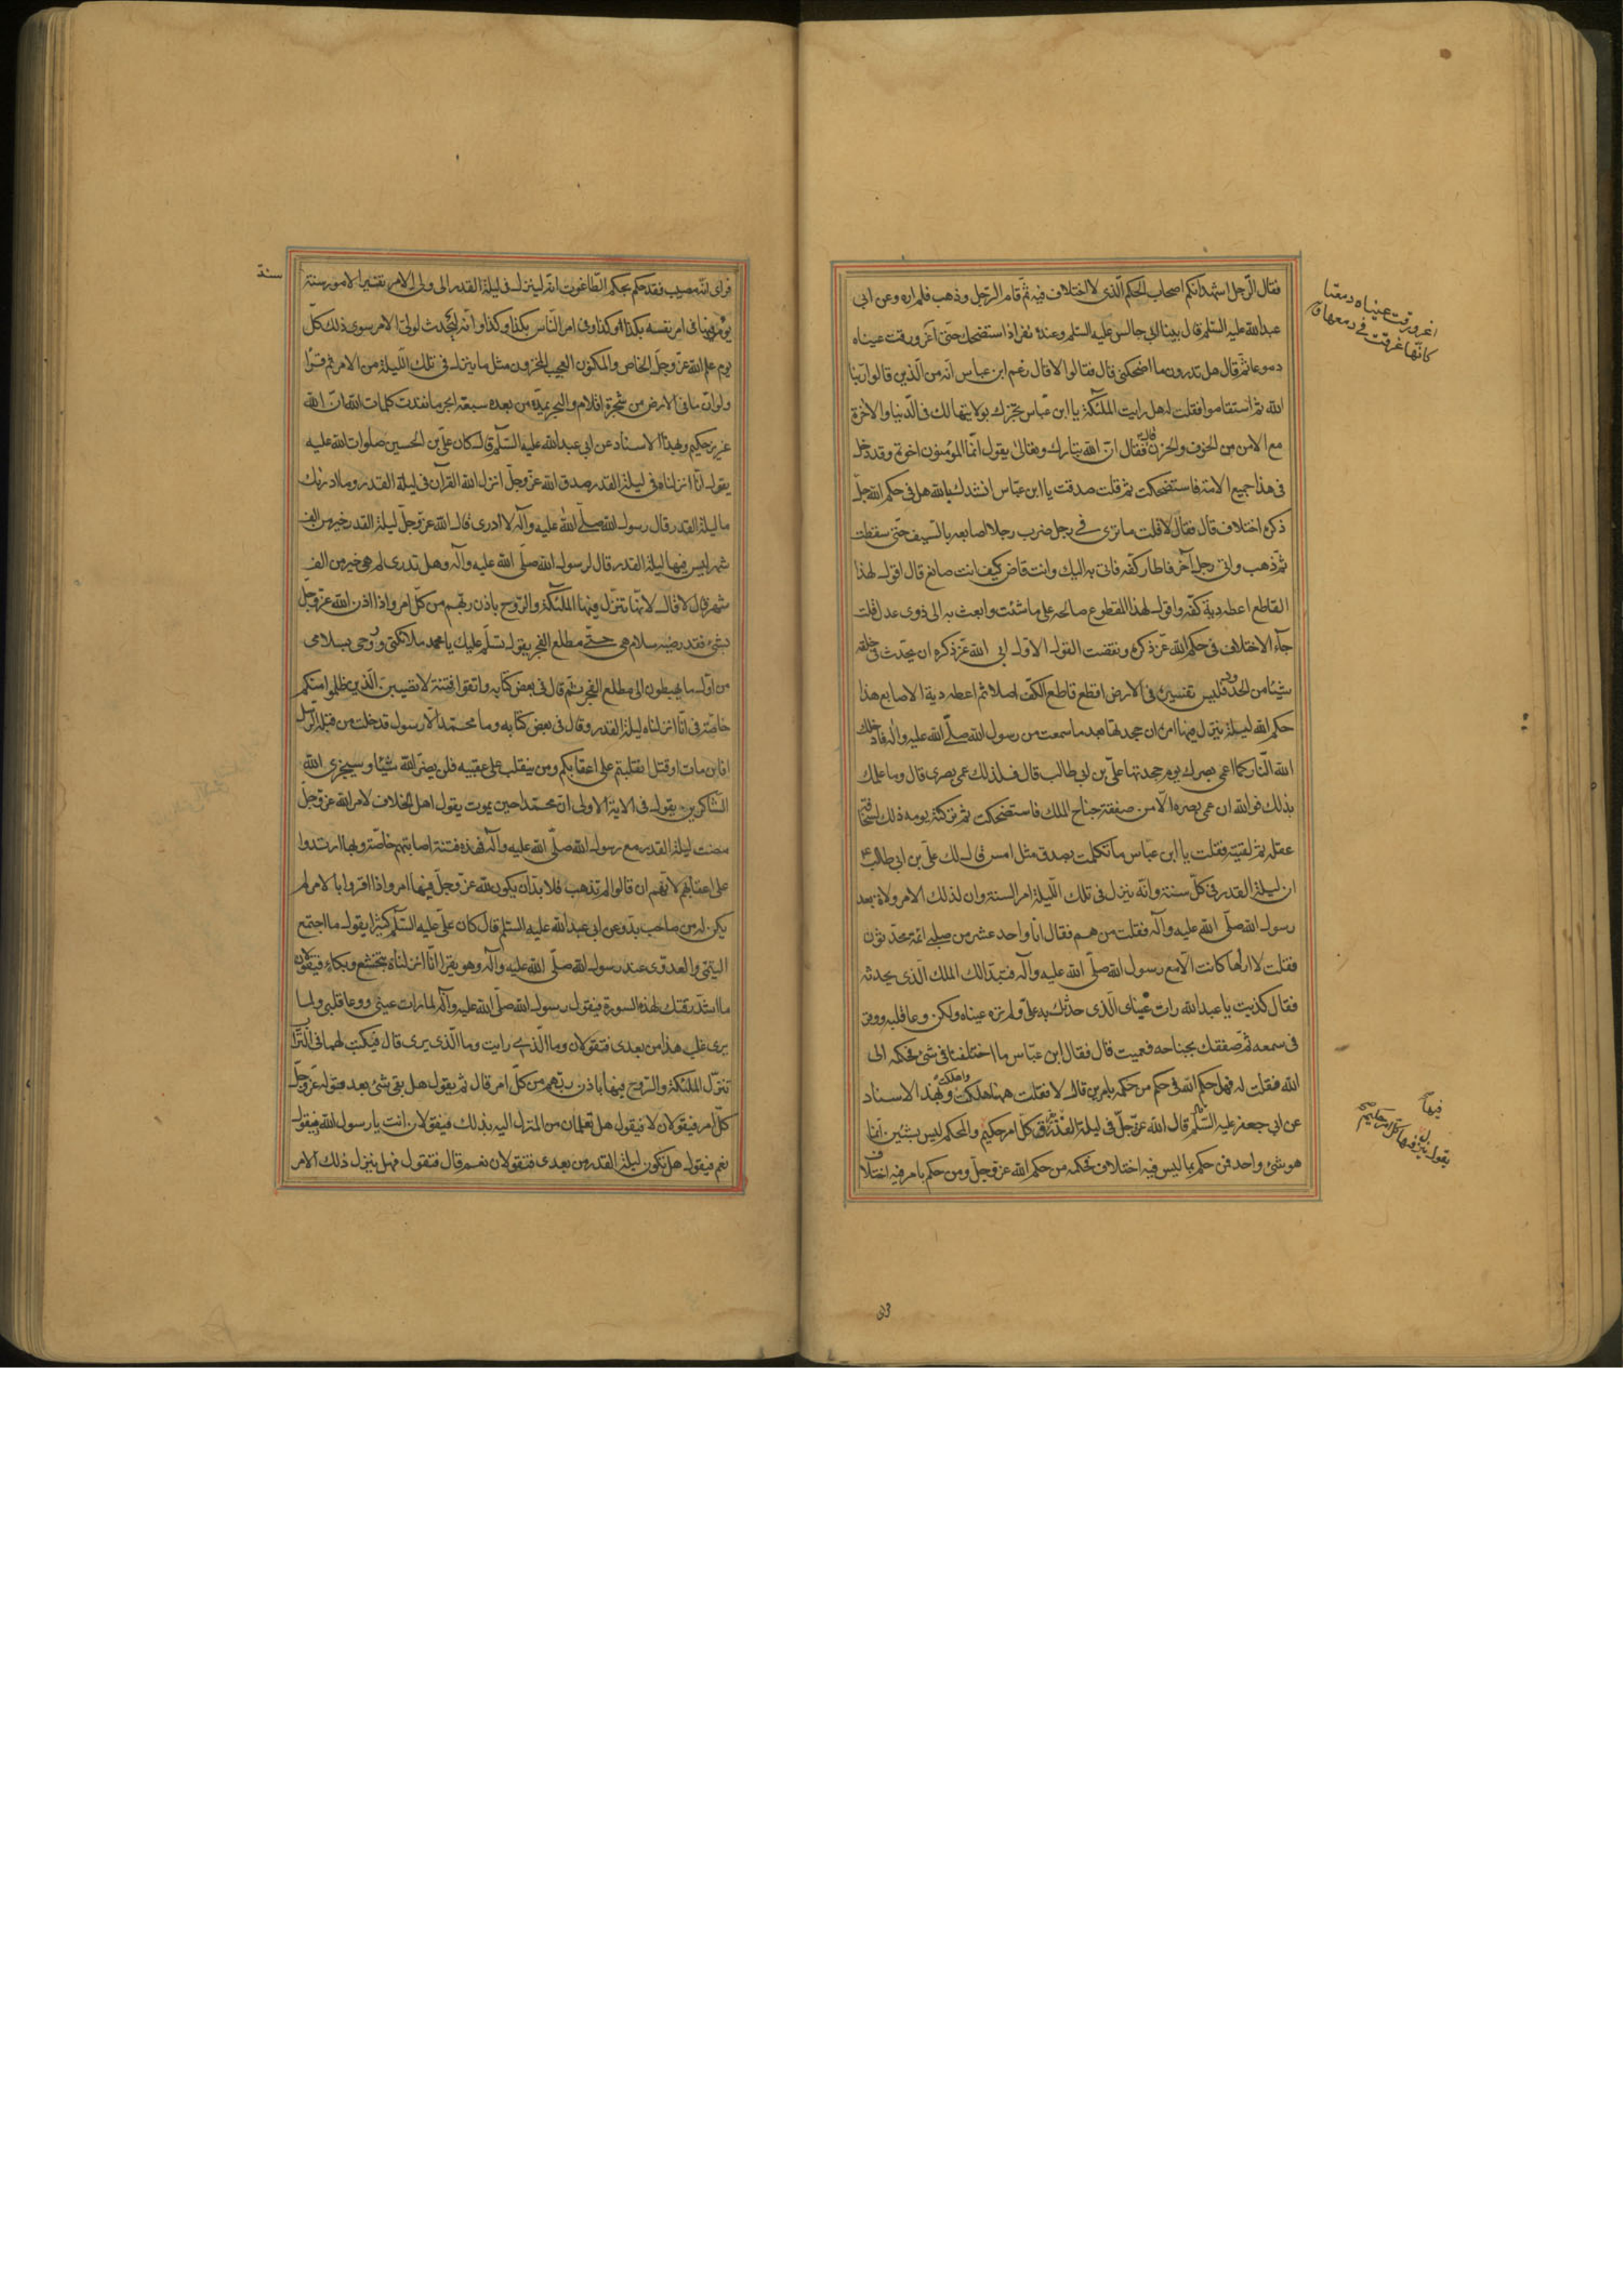 فقال الرجل اشهد انكم اصحاب الحكم الذى لا اختلاف فيه ثم قام الرجل وذهب فلم اره وعن ابى
عبدالله عليه السلم قال بينا ابى جالس عليه السلم وعنده نفر اذا استضحك حتى اغرورقت عيناه
دموعا ثم قال هل تدرون ما اضحكنى قال فقالوا لا قال زعم ابن عباس انه من الذين قالوا ربنا
الله ثم استقاموا فقلت له هل رايت الملئكة يا ابن عباس تخبرك بولايتها لك فى الدنيا والاخرة
مع الامن من الخوف والحزن قال فقال ان الله تبارك وتعالى يقول انما المؤمنون اخوة وقد دخل
فى هذا جميع الامة فاستضحكت ثم قلت صدقت يا ابن عباس انشدك بالله هل فى حكم الله جل
ذكره اختلاف قال فقال لا فقلت ما ترى فى رجل ضرب رجلا اصابعه بالسيف حتى سقطت
ثم ذهب واتى رجل آخر فاطار كفه فاتى به اليك وانت قاض كيف انت صانع قال اقول لهذا
القاطع اعطه دية كفه واقول لهذا المقطوع صالحه على ما شئت وابعث به الى ذوى عدل قلت
جآء الاختلاف فى حكم الله عز ذكره ونقضت القول الاول ابى الله عز ذكره ان يحدث فى خلقه
شيئا من الحدود فليس تفسيره فى الارض اقطع قاطع الكف اصلا ثم اعطه دية الاصابع هذا
حكم الله ليلة ينزل فيها امره ان جحدتها بعد ما سمعت من رسول الله صلى الله عليه وآله فادخلك
الله النار كما اعمى بصرك يوم جحدتها على بن ابى طالب قال فلذلك عمى بصرى قال وما علمك
بذلك فوالله ان عمى بصره الا من صفقة جناح الملك فاستضحكت ثم تركته يومه ذلك لسخافة
عقله ثم لقيته فقلت يا ابن عباس ما تكلمت بصدق مثل امس قال لك على بن ابى طالب ع
ان ليلة القدر فى كل سنة وانه ينزل فى تلك الليلة امر السنة وان لذلك الامر ولاة بعد
رسول الله صلى الله عليه وآله فقلت من هم فقال انا واحد عشر من صلبى ائمة محدثون
فقلت لا اراها كانت الا مع رسول الله صلى الله عليه وآله فتبدالك الملك الذى يحدثه
فقال كذبت يا عبدالله رات عيناى الذى حدثك به على ولم تره عيناه ولكن وعا قلبه ووقر
فى سمعه ثم صفقك بجناحه فعميت قال فقال ابن عباس ما اختلفنا فى شئ فحكمه الى
الله فقلت له فهل حكم الله فى حكم من حكمه بامرين قال لا فقلت ههنا هلكت واهلكت وبهذا الاسناد
عن ابى جعفر عليه السلم قال قال الله عز وجل فى ليلة القدر فيها يفرق كل امر حكيم والمحكم ليس بشيئين انما
هو شئ واحد فمن حكم بما ليس فيه اختلاف فحكمه من حكم الله عز وجل ومن حكم بامر فيه اختلاف
اغرورقت عيناه دمعتا
كانها غرقت فى دمعها
فيها
يقول ينزل فيها كل امر حكيم
فراى انه مصيب فقد حكم بحكم الطاغوت انه لينزل فى ليلة القدر الى ولى الامر تفسير الامور سنة
سنة
يؤمر فيها فى امر نفسه بكذا وكذا وفى امر الناس بكذا وكذا وانه ليحدث لولى الامر سوى ذلك كل
يوم علم الله عز وجل الخاص والمكنون العجيب المخزون مثل ما ينزل فى تلك الليلة من الامر ثم قرا
ولو ان ما فى الارض من شجرة اقلام والبحر يمده من بعده سبعة ابحر ما نفدت كلمات الله ان الله
عزيز حكيم وبهذا الاسناد عن ابى عبدالله عليه السلم قال كان على بن الحسين صلوات الله عليه
يقول انا انزلناه فى ليلة القدر صدق الله عز وجل انزل الله القرآن فى ليلة القدر وما ادريك
ما ليلة القدر قال رسول الله صلى الله عليه وآله لا ادرى قال الله عز وجل ليلة القدر خير من الف
شهر ليس فيها ليلة القدر قال لرسول الله صلى الله عليه وآله وهل تدرى لم هى خير من الف
شهر قال لا قال لانها تنزل فيها الملئكة والروح باذن ربهم من كل امر واذا اذن الله عز وجل
بشئ فقد رضيه سلام هى حتى مطلع الفجر يقول تسلم عليك يا محمد ملائكتى وروحى بسلامى
من اول ما يهبطون الى مطلع الفجر ثم قال فى بعض كتابه واتقوا فتنة لا تصيبن الذين ظلموا منكم
خاصة فى انا انزلناه ليلة القدر وقال فى بعض كتابه وما محمد الا رسول قد خلت من قبله الرسل
افاين مات او قتل انقلبتم على اعقابكم ومن ينقلب على عقبيه فلن يضر الله شيئا وسيجزى الله
الشاكرين يقول فى الاية الاولى ان محمدا حين يموت يقول اهل الخلاف لامر الله عز وجل
مضت ليلة القدر مع رسول الله صلى الله عليه وآله فهذه فتنة اصابتهم خاصة وبها ارتدوا
على اعقابهم لانهم ان قالوا لم تذهب فلا بد ان يكون لله عز وجل فيها امر واذا اقروا بالامر لم
يكن له من صاحب بد وعن ابى عبدالله عليه السلم قال كان على عليه السلم كثيرا يقول ما اجتمع
التيمى والعدوى عند رسول الله صلى الله عليه وآله وهو يقرا انا انزلناه بتخشع وبكاء فيقولان
ما اشد رقتك لهذه السورة فيقول رسول الله صلى الله عليه وآله لما رات عينى ووعا قلبى ولما
يرى قلب هذا من بعدى فيقولان وما الذى رايت وما الذى يرى قال فيكتب لهما فى التراب
تنزل الملئكة والروح فيها باذن ربهم من كل امر قال ثم يقول هل بقى شئ بعد قوله عز وجل
كل امر فيقولان لا فيقول هل تعلمان من المنزل اليه بذلك فيقولان انت يا رسول الله فيقول
نعم فيقول هل تكون ليلة القدر من بعدى فيقولان نعم قال فيقول فهل ينزل ذلك الامر